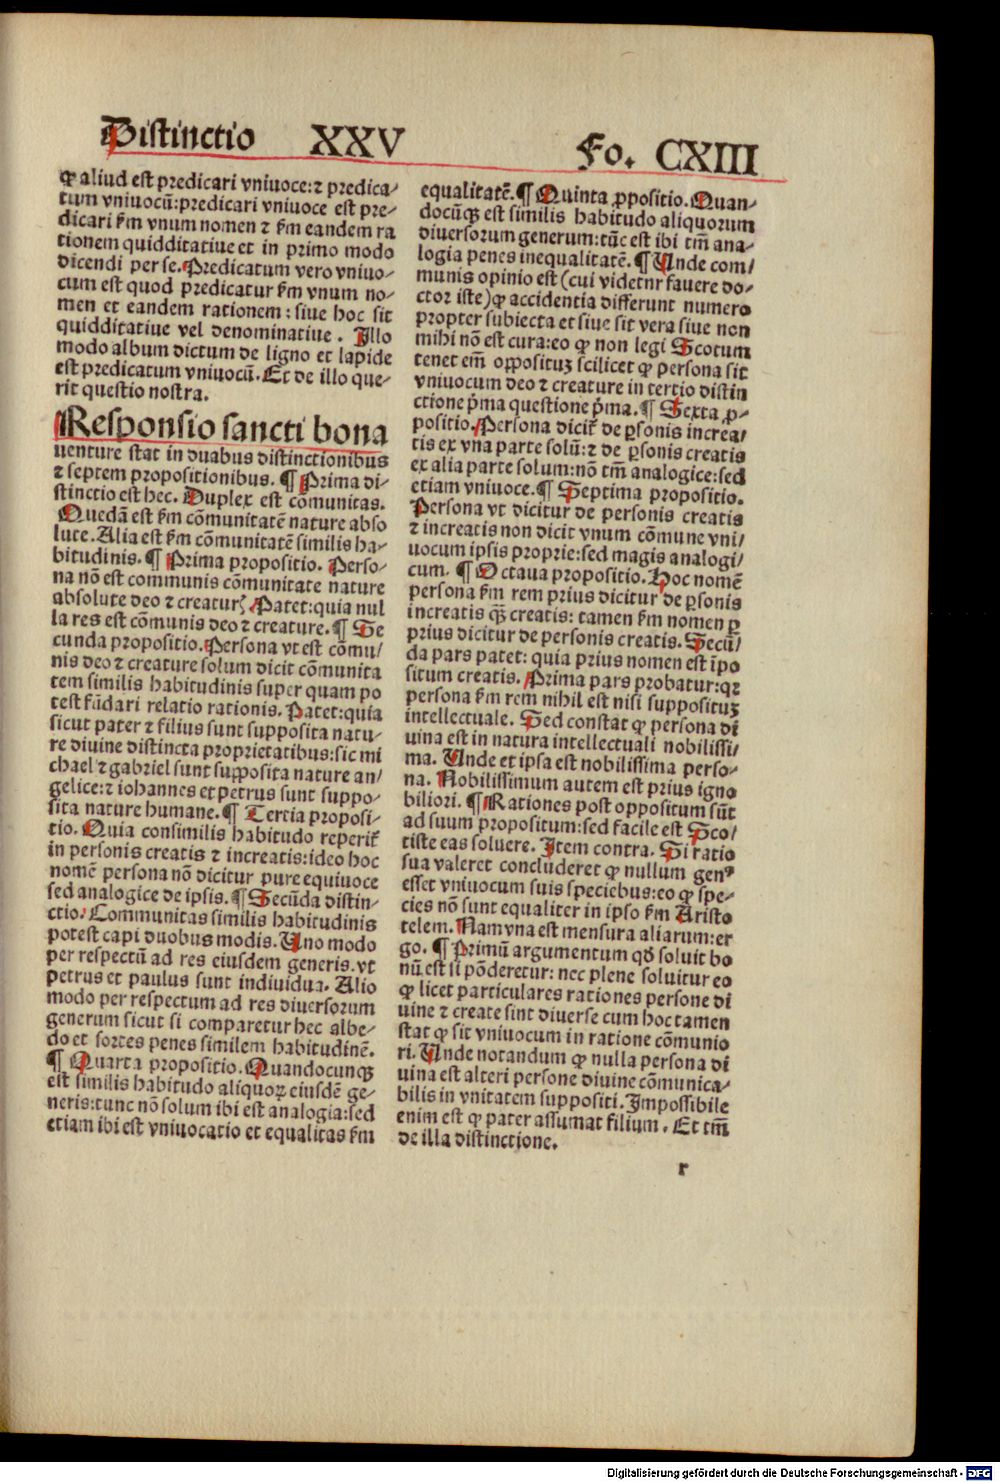 Distinctio XXV Fo. CXIII
ꝙ aliud est predicari vniuoce: ⁊ predica-
tum vniuocũ: predicari vniuoce est pre-
dicari ẜm vnum nomen ⁊ ẜm eandem ra
tionem quidditatiue et in primo modo
dicendi per se. Predicatum vero vniuo-
cum est quod predicatur ẜm vnum no-
men et eandem rationem: siue hoc sit
quidditatiue vel denominatiue. Illo
modo album dictum de ligno et lapide
est predicatum vniuocũ. Et de illo que-
rit questio nostra.
Responsio sancti bona
uenture stat in duabus distinctionibus
⁊ septem propositionibus. ¶ Prima di-
stinctio est hec. Duplex est cõmunitas.
Quedã est ẜm cõmunitatẽ nature abso
lute. Alia est ẜm cõmunitatẽ similis ha-
bitudinis. ¶ Prima propositio. Perso-
na nõ est communis cõmunitate nature
absolute deo ⁊ creaturꝭ. Patet: quia nul
la res est cõmunis deo ⁊ creature. ¶ Se
cunda propositio. Persona vt est cõmu/
nis deo ⁊ creature solum dicit cõmunita
tem similis habitudinis super quam po
test fũdari relatio rationis. Patet: quia
sicut pater ⁊ filius sunt supposita natu-
re diuine distincta proprietatibus: sic mi
chael ⁊ gabriel sunt supposita nature an/
gelice: ⁊ iohannes et petrus sunt suppo-
sita nature humane. ¶ Tertia proposi-
tio. Quia consimilis habitudo reperit᷑
in personis creatis ⁊ increatis: ideo hoc
nomẽ persona nõ dicitur pure equiuoce
sed analogice de ipsis. ¶ Secũda distin-
ctio. Communitas similis habitudinis
potest capi duobus modis. Uno modo
per respectũ ad res eiusdem generis. vt
petrus et paulus sunt indiuidua. Alio
modo per respectum ad res diuersorum
generum sicut si comparetur hec albe-
do et sortes penes similem habitudinẽ.
¶ Quarta propositio. Quandocunqꝫ
est similis habitudo aliquoꝝ eiusdẽ ge-
neris: tunc nõ solum ibi est analogia: sed
etiam ibi est vniuocatio et equalitas ẜm
equalitatẽ. ¶ Quinta ꝓpositio. Quan-
docũqꝫ est similis habitudo aliquorum
diuersorum generum: tũc est ibi tm̃ ana-
logia penes inequalitatẽ. ¶ Unde com/
munis opinio est (cui videtur fauere do-
ctor iste) ꝙ accidentia differunt numero
propter subiecta et siue sit vera siue non
mihi nõ est cura: eo ꝙ non legi Scotum
tenet em̃ oppositũ scilicet ꝙ persona sit
vniuocum deo ⁊ creature in tertio distin
ctione p̃ma questione p̃ma. ¶ Sexta ꝓ-
positio. Persona dicit᷑ de ꝑsonis increa/
tis ex vna parte solũ: ⁊ de ꝑsonis creatis
ex alia parte solum: nõ tm̃ analogice: sed
etiam vniuoce. ¶ Septima propositio.
Persona vt dicitur de personis creatis
⁊ increatis non dicit vnum cõmune vni/
uocum ipsis proprie: sed magis analogi/
cum. ¶ Octaua propositio. Hoc nomẽ
persona ẜm rem prius dicitur de ꝑsonis
increatis qꝫ̃ creatis: tamen ẜm nomen ꝑ
prius dicitur de personis creatis. Secũ/
da pars patet: quia prius nomen est ĩpo
situm creatis. Prima pars probatur: qꝛ
persona ẜm rem nihil est nisi suppositũ
intellectuale. Sed constat ꝙ persona di
uina est in natura intellectuali nobilissi/
ma. Unde et ipsa est nobilissima perso-
na. Nobilissimum autem est prius igno
biliori. ¶ Rationes post oppositum sũt
ad suum propositum: sed facile est Sco/
tiste eas soluere. Item contra. Si ratio
sua valeret concluderet ꝙ nullum genꝰ
esset vniuocum suis speciebus: eo ꝙ spe-
cies nõ sunt equaliter in ipso ẜm Aristo
telem. Nam vna est mensura aliarum: er
go. ¶ Primũ argumentum qd̃ soluit bo
nũ est si põderetur: nec plene soluitur eo
ꝙ licet particulares rationes persone di
uine ⁊ create sint diuerse cum hoc tamen
stat ꝙ sit vniuocum in ratione cõmunio
ri. Unde notandum ꝙ nulla persona di
uina est alteri persone diuine cõmunica-
bilis in vnitatem suppositi. Impossibile
enim est ꝙ pater assumat filium. Et tm̃
de illa distinctione.
r
Digitalisierung gefördert durch die Deutsche Forschungsgemeinschaft - DFG